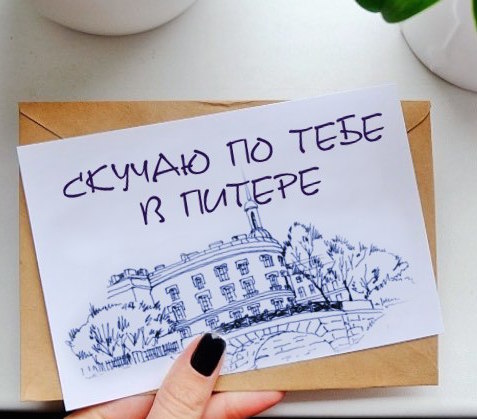 СКУЧАЮ ПО ТЕБЕ
В ПИТЕРЕ